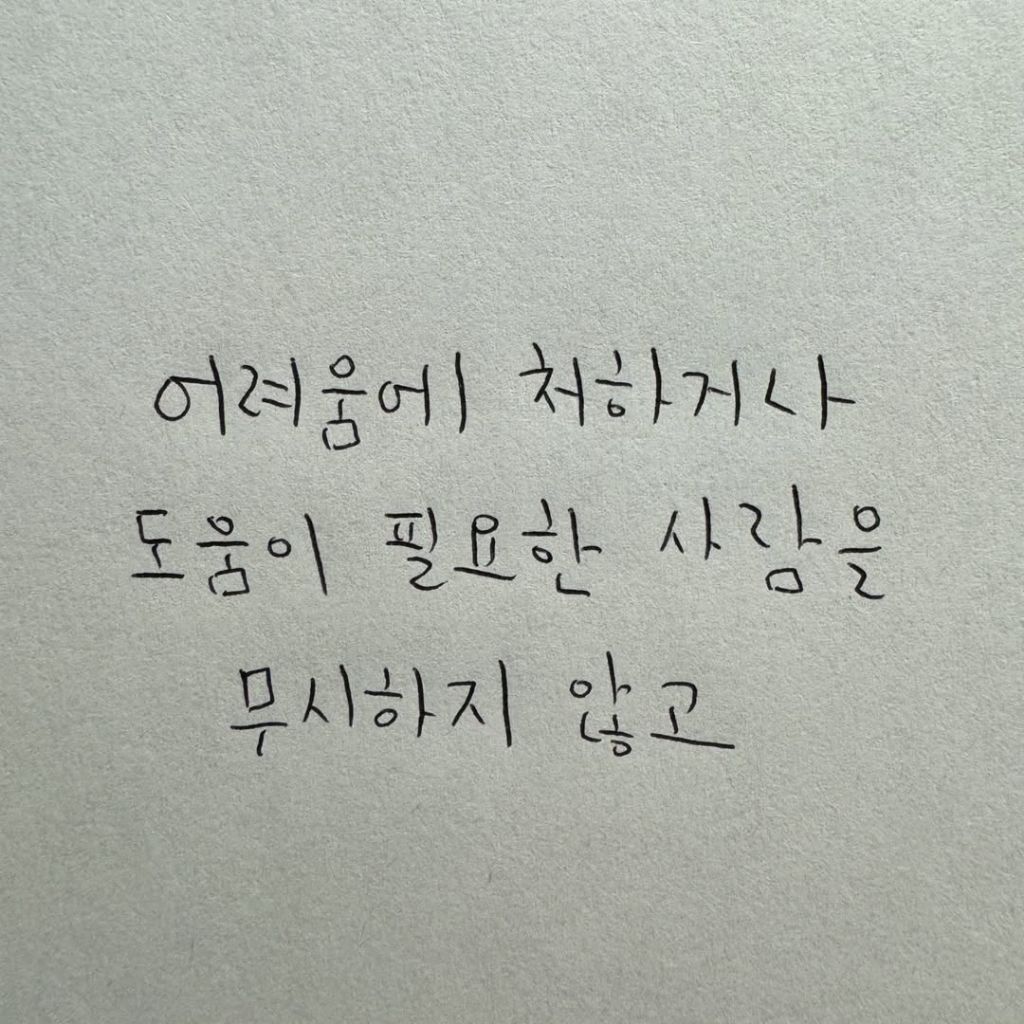 어려움에 처하거나
도움이 필요한 사람을
무시하지 않고